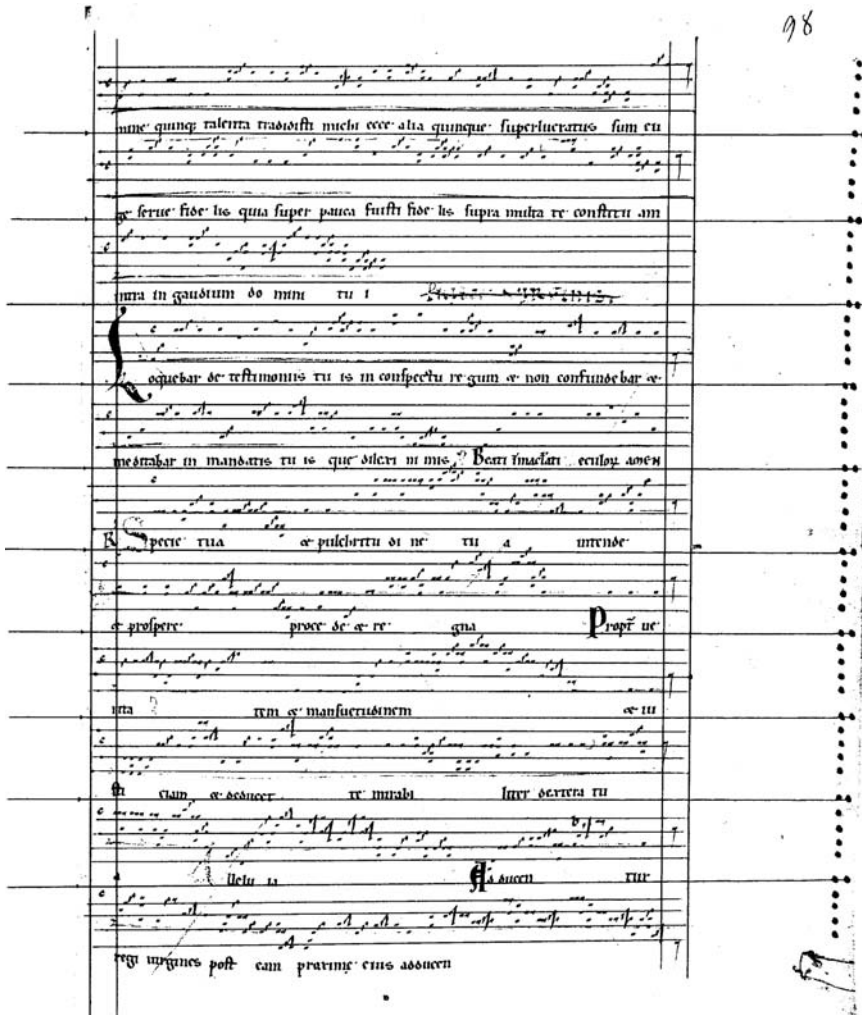 98
mine quinqꝫ talenta tradidisti michi ecce alia quinque superlucratus sum eu
ge serue fide lis quia super pauca fuisti fide lis supra multa te constitu am
intra in gaudium do mini tu i
Loquebar de testimoniis tu is in conspectu re gum & non confunde bar &
meditabar in mandatis tu is que dilexi ni mis Beati īmaclati eculoꝝ amen
R Specie tua & pulchritu di ne tu a intende
& prospere proce de & re gna Propt̄ ue
rita tem & mansuetudinem & iu
sti ciam & deducet te mirabi liter dextera tu
a Alleluia Adducen tur
regi uirgines post eam proxime eius adducen